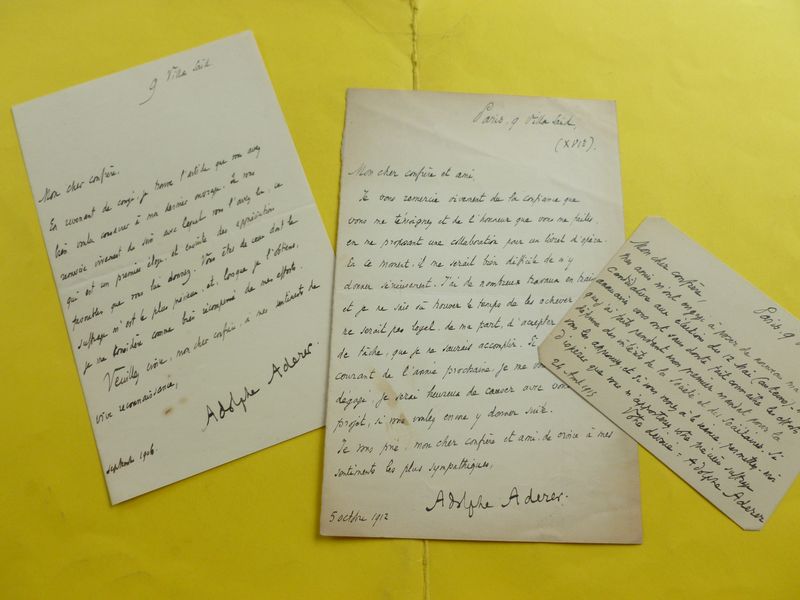 9 Villa Saïd
Mon cher confrère.
En revenant de congé je trouve l'article que vous avez
bien voulu consacrer à mon dernier ouvrage. Je vous
remercie vivement du soin avec lequel vous l'avez lu, ce
qui est un premier éloge et ensuite des appréciations
favorables que vous lui donnez. Vous êtes de ceux dont le
suffrage m'est le plus précieux et, lorsque je l'obtiens,
je me considère comme bien récompensé de mes efforts.
Veuillez croire, mon cher confrère, à mes sentiments de
vive reconnaissance,
Adolphe Aderer.
septembre 1906.
Paris, 9 Villa Saïd,
(XVIe).
Mon cher confrère et ami,
Je vous remercie vivement de la confiance que
vous me témoignez et de l'honneur que vous me faites
en me proposant une collaboration pour un livret d'opéra.
En ce moment, il me serait bien difficile de m'y
donner sérieusement. J'ai de nombreux travaux en train
et je ne sais où trouver le temps de les achever
ne serait pas loyal, de ma part, d'accepter
de tâche, que je ne saurais accomplir. Si
courant de l'année prochaine, je me
dégagé, je serai heureux de causer avec vous
projet, si vous voulez encore y donner suite.
Je vous prie, mon cher confrère et ami, de croire à mes
sentiments les plus sympathiques,
Adolphe Aderer.
5 octobre 1912
Paris, 9
Mon cher confrère,
Mes amis m'ont engagé à poser de nouveau ma
candidature aux élections du 12 Mai (auteurs).
annuaires vous ont, sans doute, fait connaître les efforts
que j'ai faits pendant mon premier mandat pour la
défense des intérêts de la Société et des Sociétaires. Si
vous les approuvez et si vous venez à la séance, permettez-moi
d'espérer que vous m'apporterez votre précieux suffrage
Votre dévoué. Adolphe Aderer
24 Avril 1913